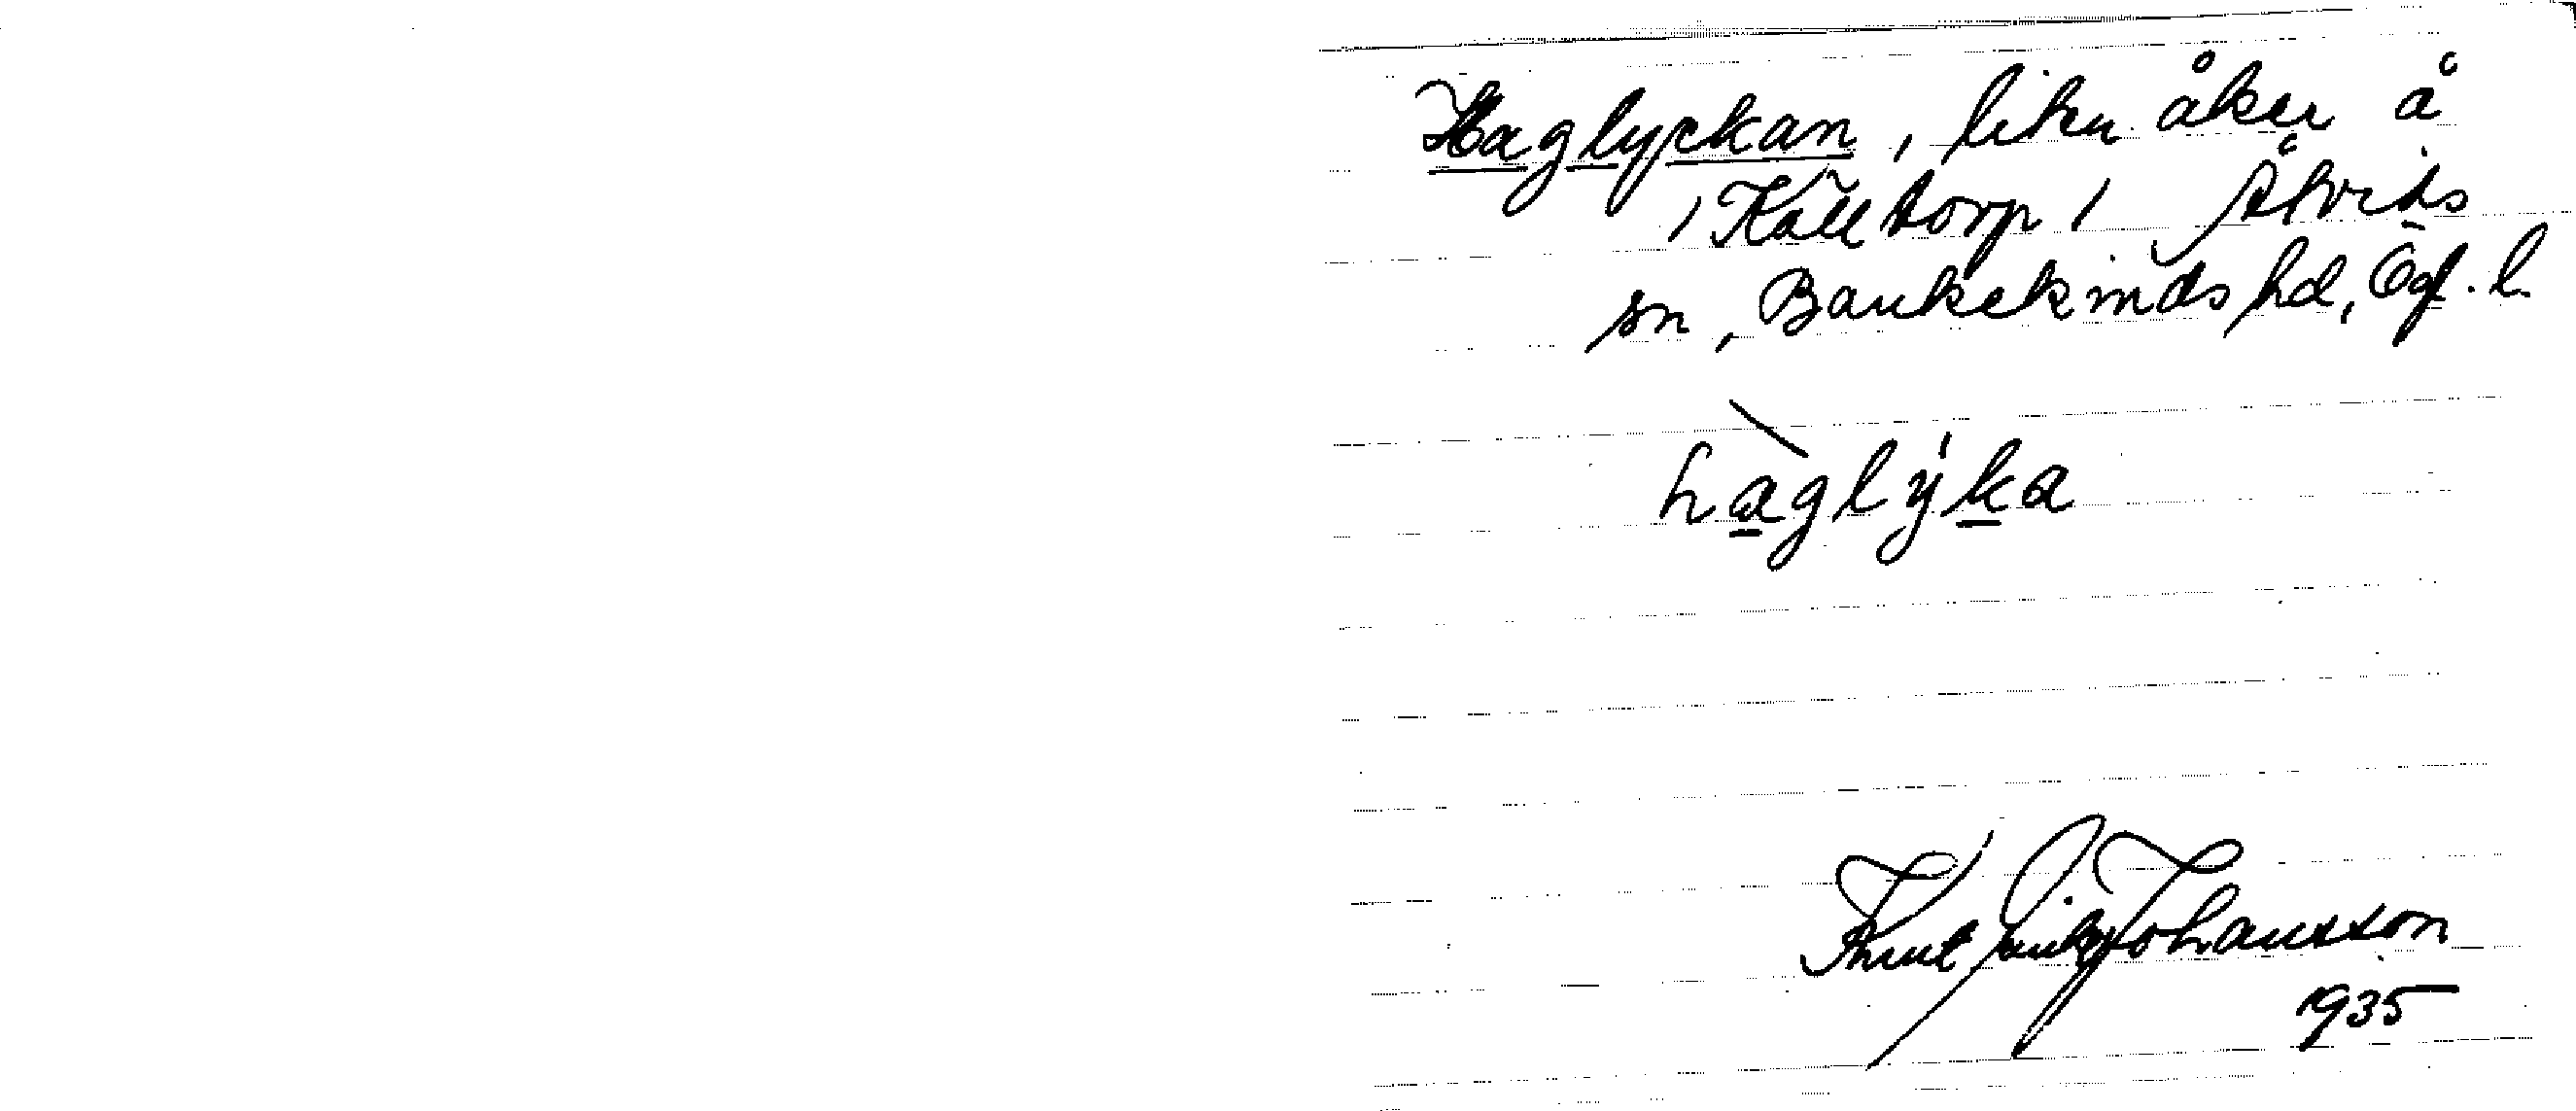 Haglyckan, liten åker å
/Källtorp/ Åtvids
sn, Bankekinds hd, Ögl. l.
hàglýka
Knut Erik Johansson
1935